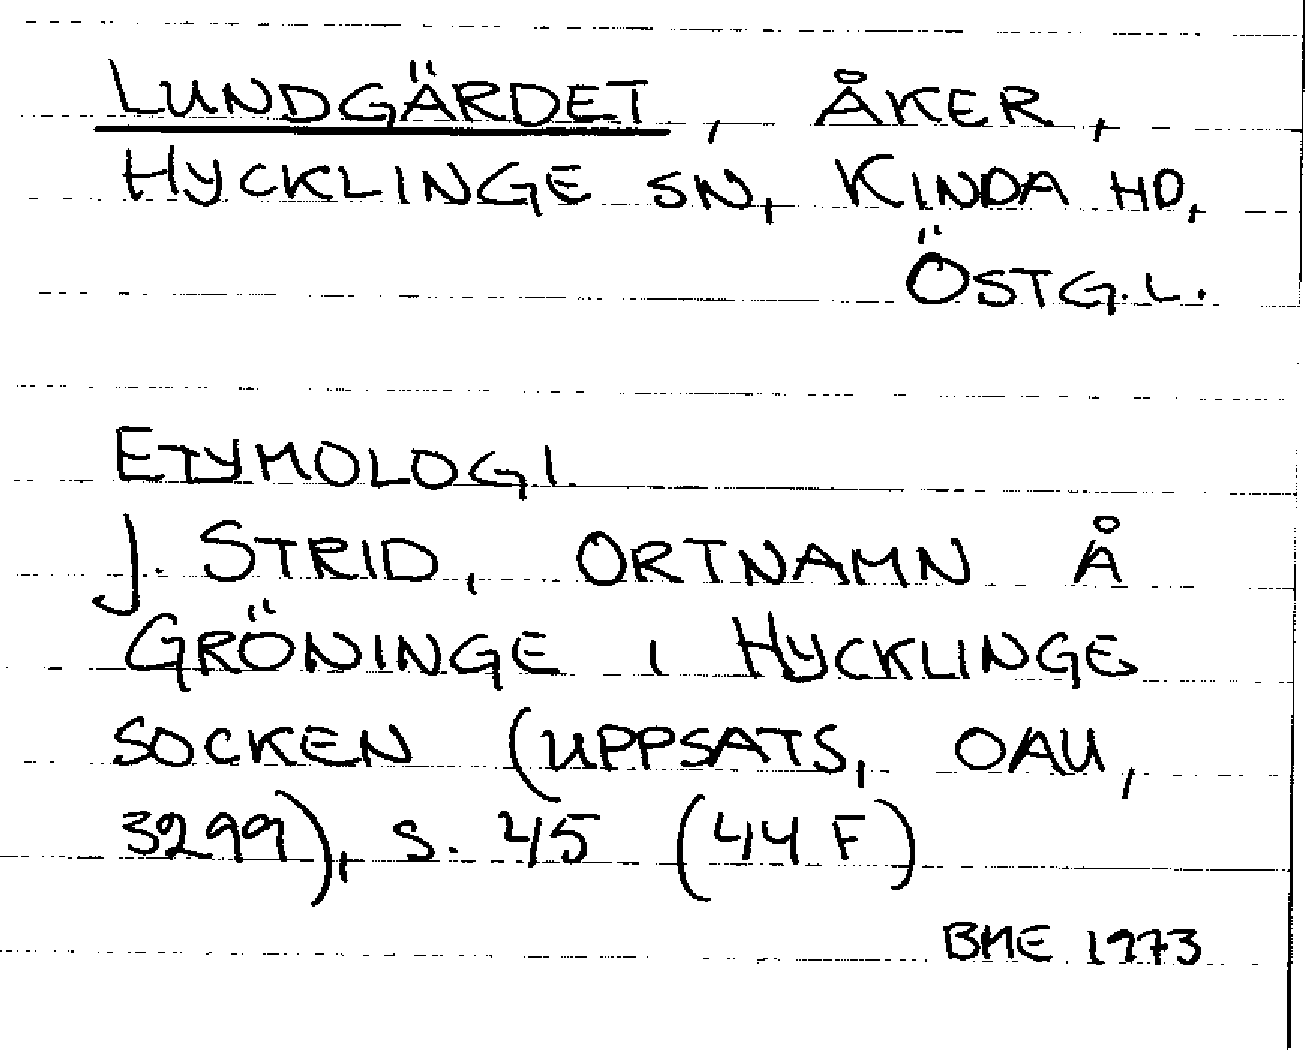 LUNDGÄRDET, ÅKER,
HYCKLINGE SN, KINDA HD,
ÖSTG.L.
ETYMOLOGI.
J. STRID, ORTNAMN Å
GRÖNINGE I HYCKLINGE
SOCKEN (UPPSATS, OAU,
3299), S. 45 (44 F)
BME 1973